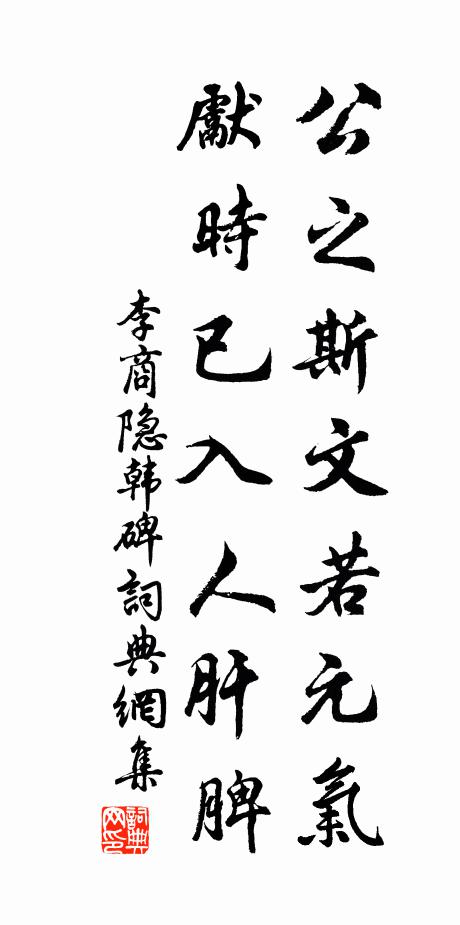 公之斯文若元氣
獻時已入人肝脾
李商隐韩碑詞典網集
詞典
网印